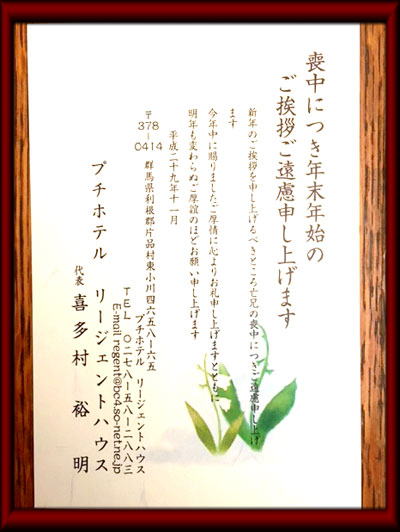 喪中につき年末年始の
ご挨拶ご遠慮申し上げます
新年のご挨拶を申し上げるべきところ亡兄の喪中につきご遠慮申し上げ
ます
今年中に賜りましたご厚情に心よりお礼申し上げますとともに
明年も変わらぬご厚誼のほどお願い申し上げます
平成二十九年十一月
〒378-0414
群馬県利根郡片品村東小川四六五八ー六五
プチホテル リージェントハウス
TEL 〇二七八ー五八ー二八八三
E-mail regent@bc4.so-net.ne.jp
プチホテル リージェントハウス
代表 喜多村 裕明